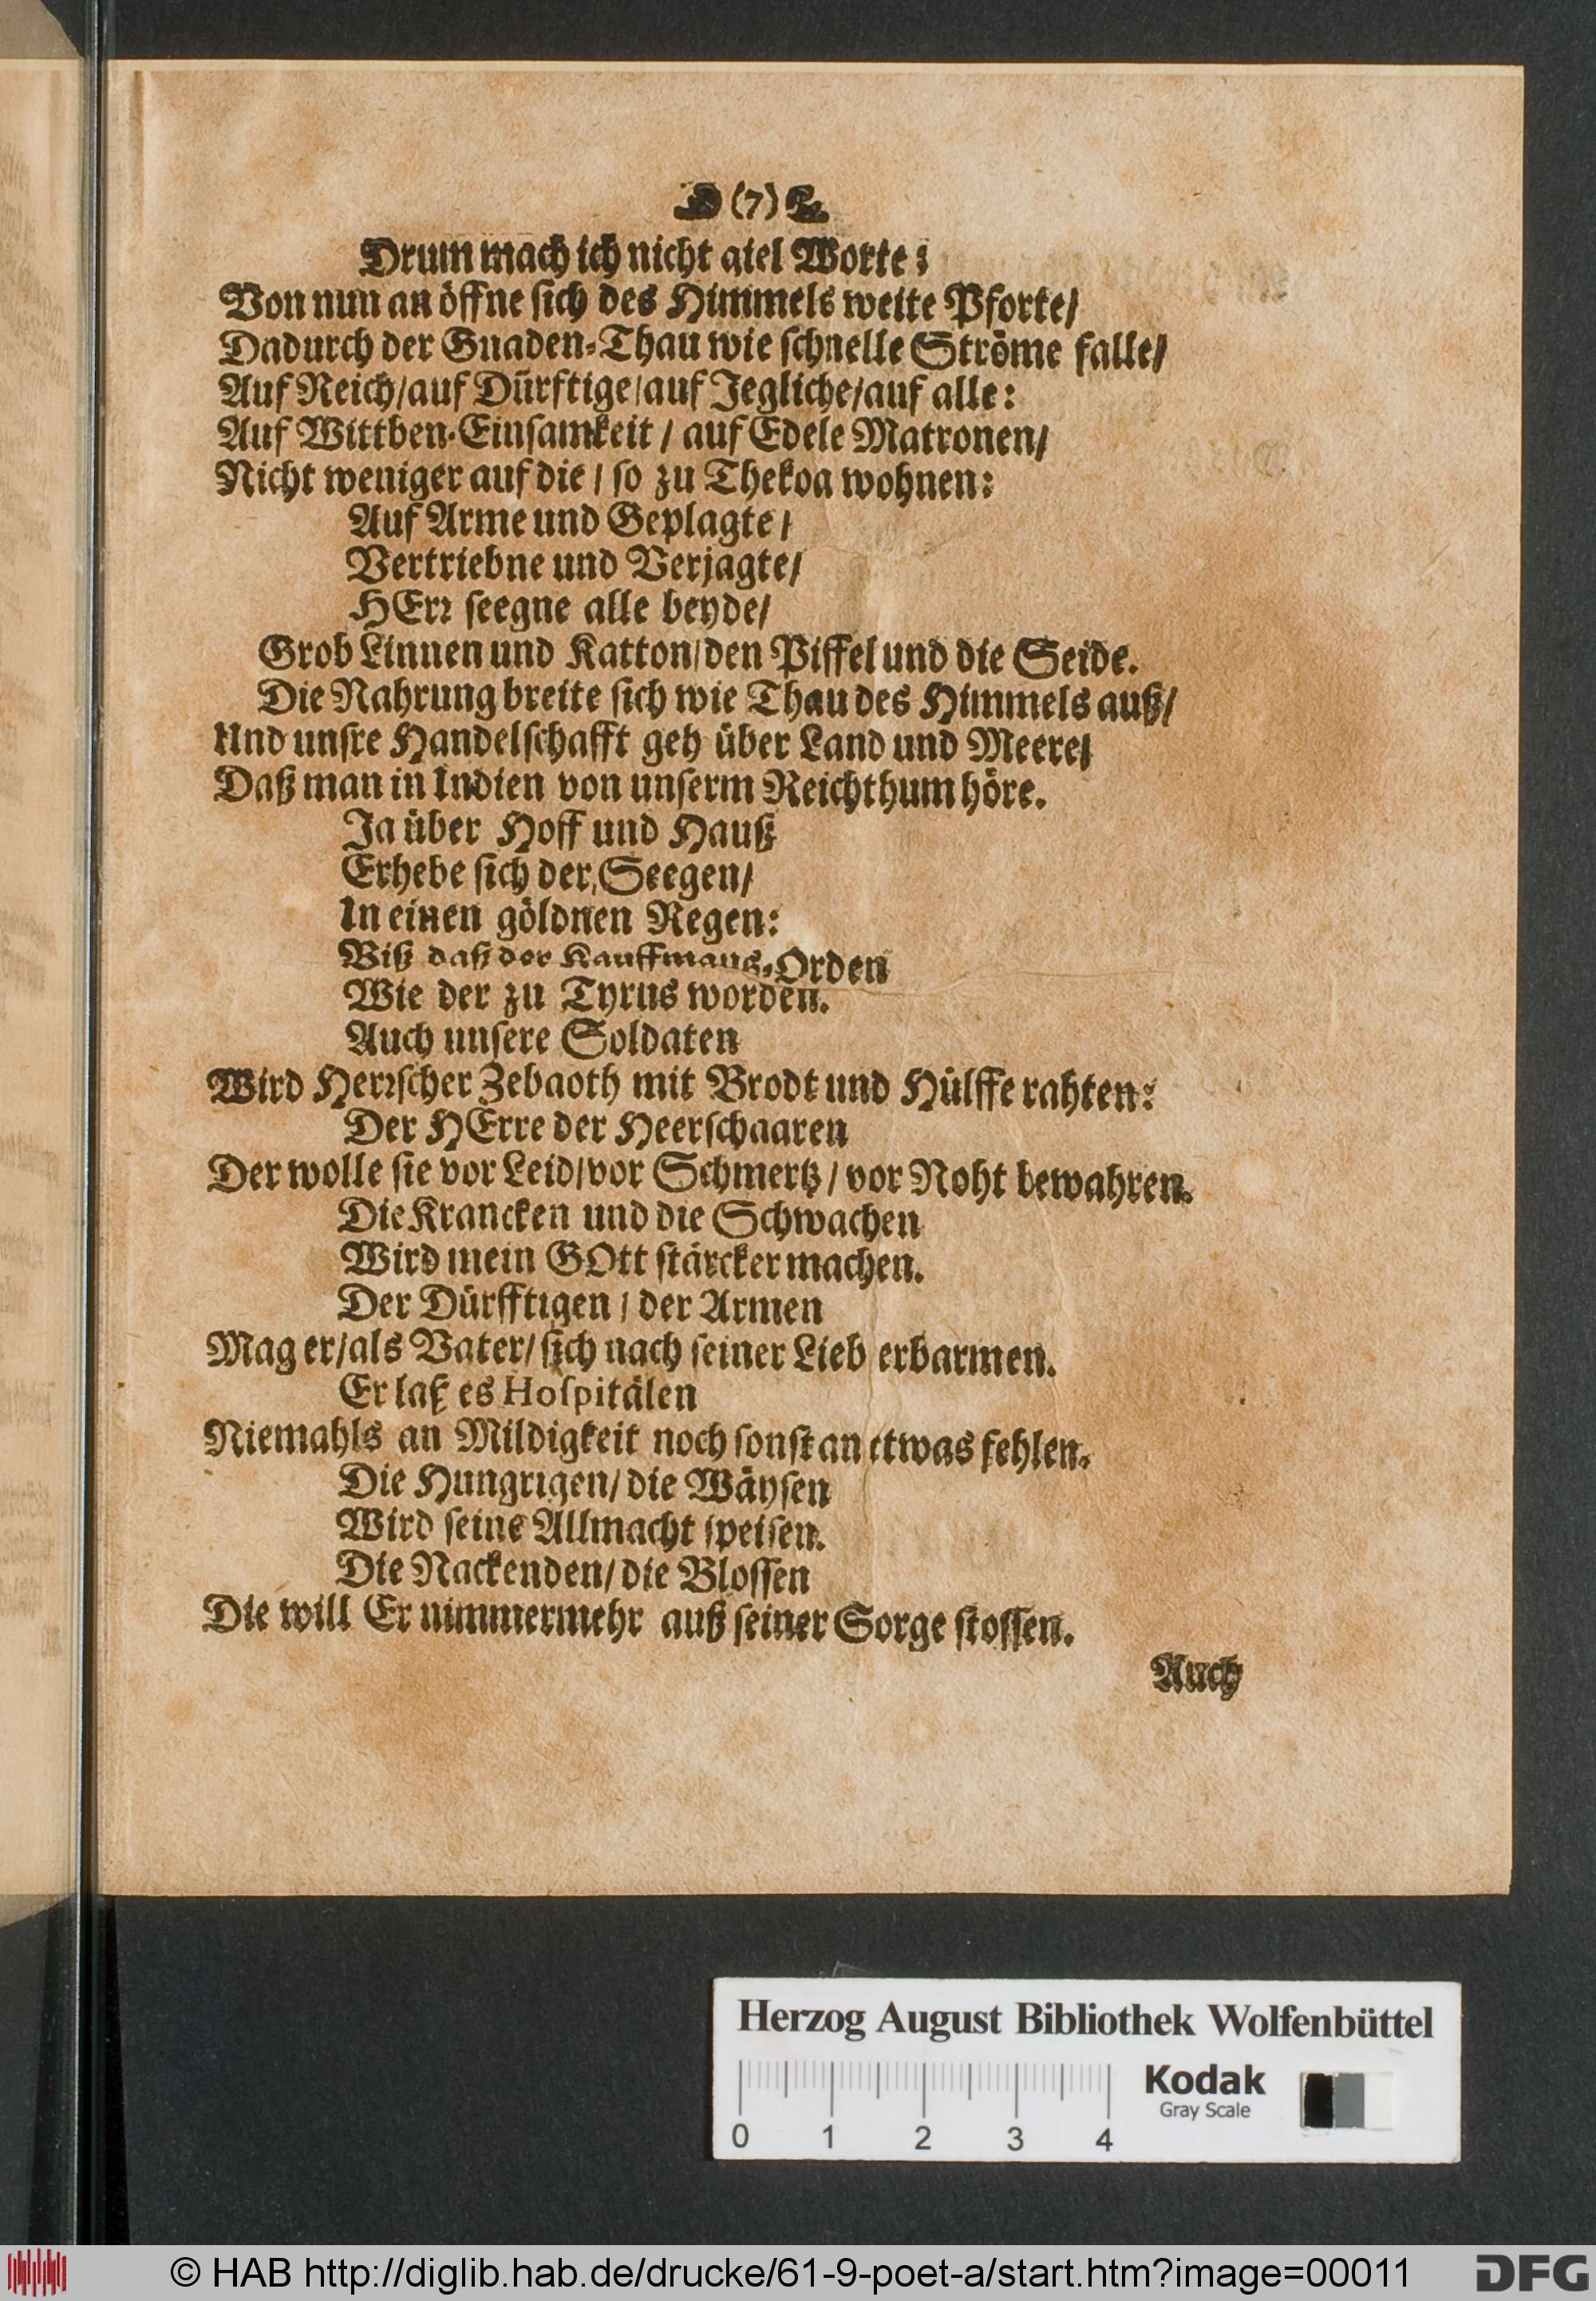 (7)
Drum mach ich nicht giel Worte:
Von nun an öffne sich des Himmels weite Pforte/
Dadurch der Gnaden-Thau wie schnelle Ströme falle/
Auf Reich/auf Dürftige/auf Jegliche/auf alle:
Auf Wittben-Einsamkeit / auf Edele Matronen/
Nicht weniger auf die / so zu Thekoa wohnen:
Auf Arme und Geplagte /
Vertriebne und Verjagte/
HErr seegne alle beyde/
Grob Linnen und Katton/den Piffel und die Seide.
Die Nahrung breite sich wie Thau des Himmels auß/
Und unsre Handelschafft geh über Land und Meere/
Daß man in Indien von unserm Reichthum höre.
Ja über Hoff und Hauß
Erhebe sich der Seegen/
In einen göldnen Regen:
Biß daß der Kauffmans-Orden
Wie der zu Tyrus worden.
Auch unsere Soldaten
Wird Herrscher Zebaoth mit Brodt und Hülffe rahten:
Der HErre der Heerschaaren
Der wolle sie vor Leid/vor Schmertz / vor Noht bewahren.
Die Krancken und die Schwachen
Wird mein GOtt stärcker machen.
Der Dürfftigen / der Armen
Mag er/als Vater/sich nach seiner Lieb erbarmen.
Er laß es Hospitälen
Niemahls an Mildigkeit noch sonst an etwas fehlen.
Die Hungrigen/die Wäysen
Wird seine Allmacht speisen.
Die Nackenden/die Blossen
Die will Er nimmermehr auß seiner Sorge stossen.
Auch
Herzog August Bibliothek Wolfenbüttel
Kodak
Gray Scale
0 1 2 3 4
© HAB http://diglib.hab.de/drucke/61-9-poet-a/start.htm?image=00011
DFG